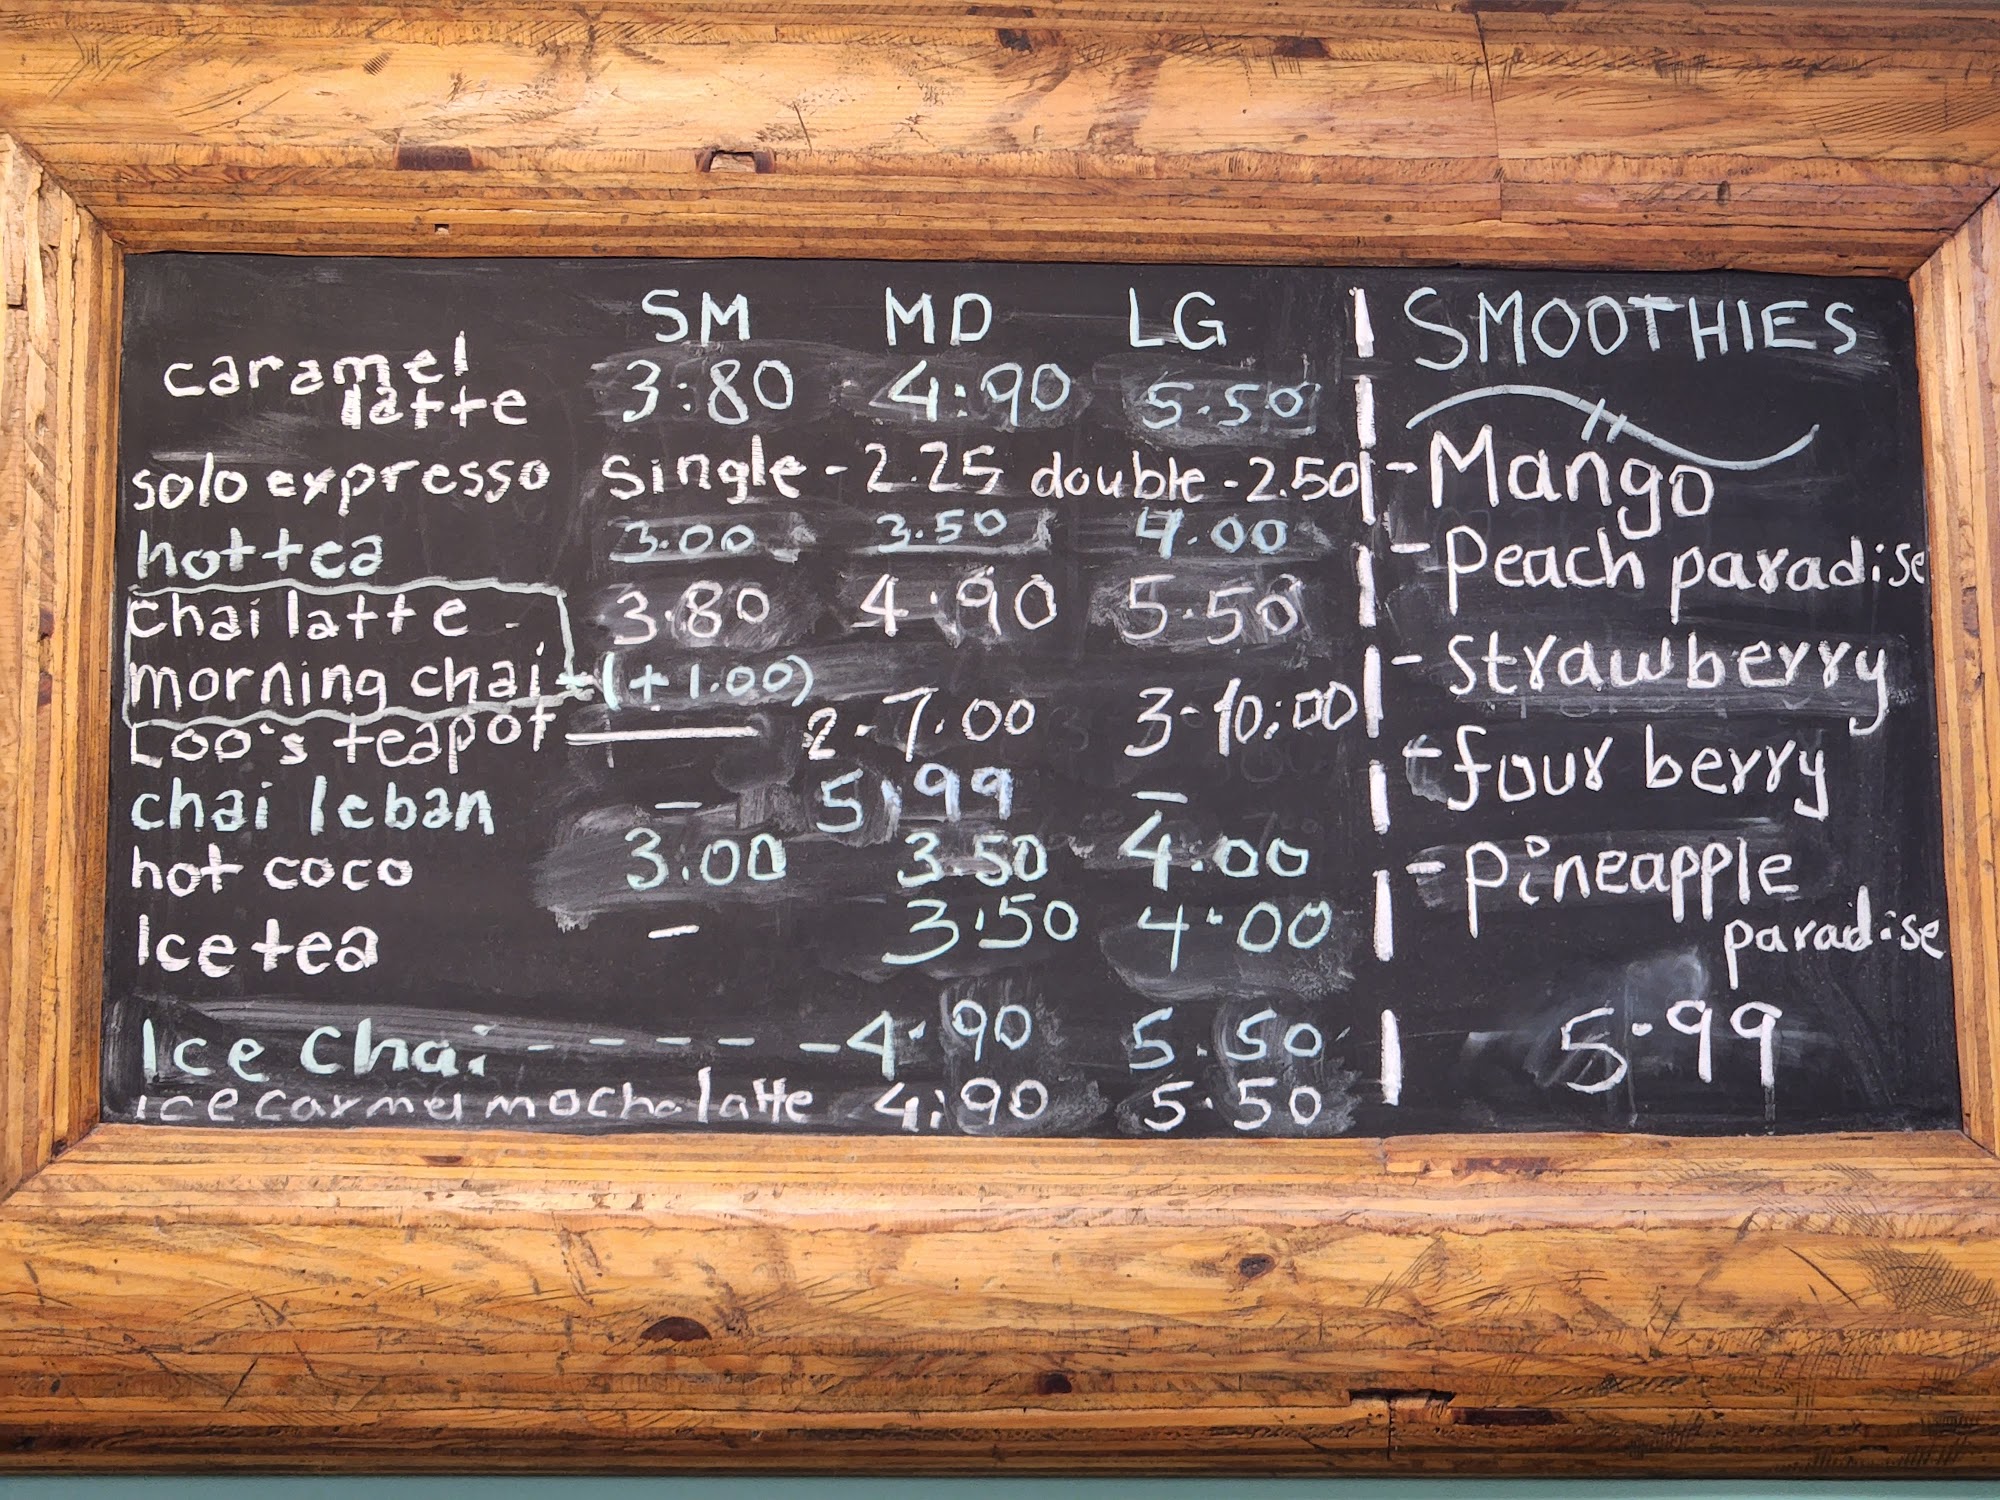 SM MD LG
caramel latte 3:80 4:90 5.50
solo expresso single - 2.25 double - 2.50
hot tea 3.00 3.50 4.00
chai latte 3.80 4.90 5.50
morning chai (+1.00)
Loo's teapot — 2-7.00 3-10:00
chai leban — 5.99 —
hot coco 3.00 3.50 4.00
Ice tea — 3.50 4.00
Ice chai - - - - - 4.90 5.50
ice carmel mocha latte 4.90 5.50
SMOOTHIES
- Mango
- Peach paradise
- strawberry
- four berry
- pineapple
paradise
5.99